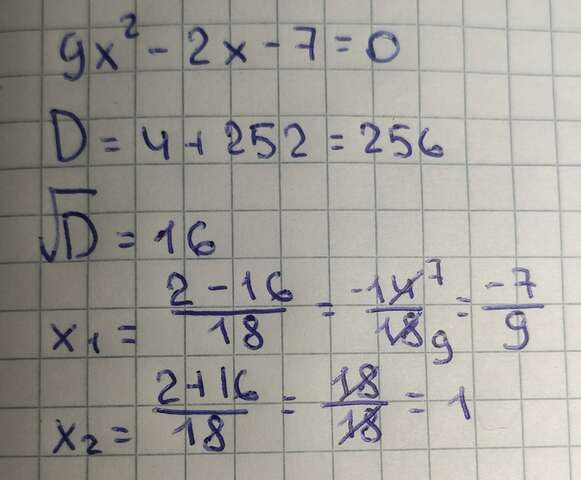 9x² - 2x - 7 = 0
D = 4 + 252 = 256
√D = 16
x₁ = (2 - 16)/18 = -14/18 7/9 = -7/9
x₂ = (2 + 16)/18 = 18/18 = 1